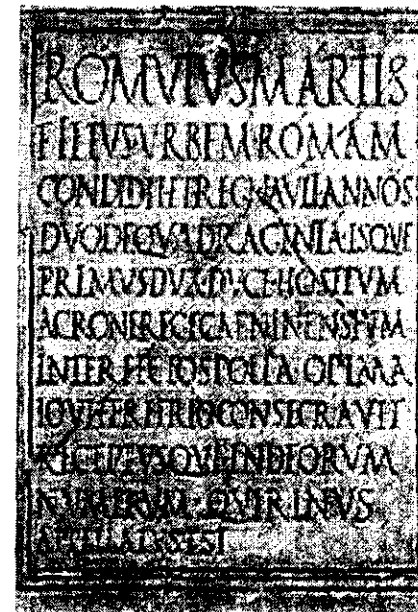 ROMVLVS MARTIS
FILIVS VRBEM ROMAM
CONDIDIT ET REGNAVIT ANNOS
DVODEQVADRAGINTA ISQVE
PRIMVS DVX DVCE HOSTIVM
ACRONE REGE CAENINENSIVM
INTERFECTO SPOLIA OPIMA
IOVI FERETRIO CONSECRAVIT
RECEPTVSQVE IN DEORVM
NVMERVM QVIRINVS
APPELLATVS EST